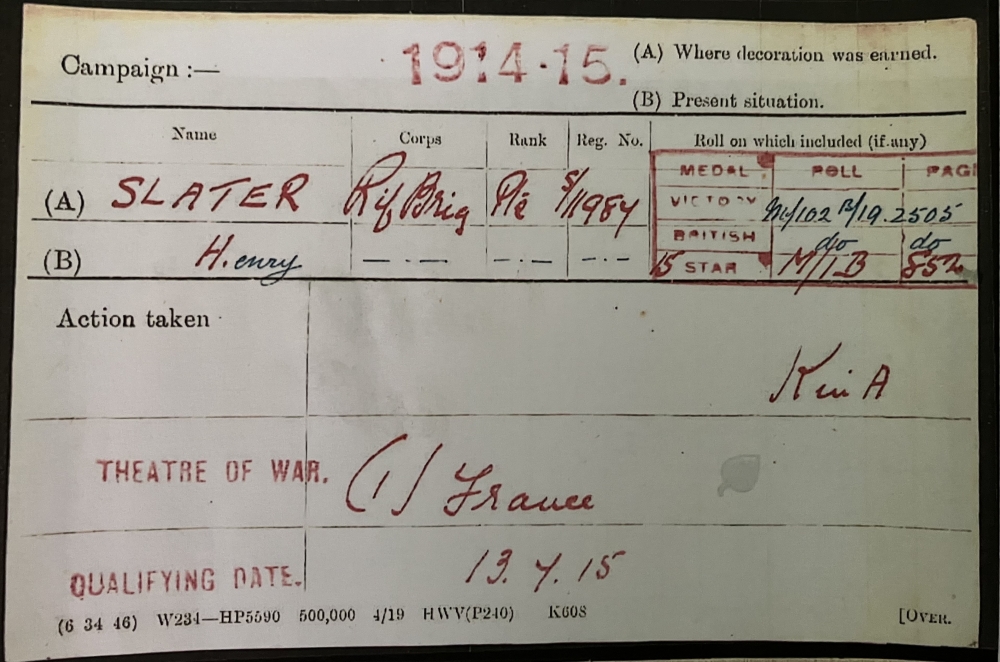 Campaign :— 1914-15. (A) Where decoration was earned.
(B) Present situation.
Name Corps Rank Reg. No. Roll on which included (if any)
MEDAL ROLL PAGE
(A) SLATER Rif Brig Pte S/1984 VICTORY 102 B19. 2505
(B) H.enry —·— —·— —·— BRITISH do do
15 STAR M/1B 852
Action taken
K in A
THEATRE OF WAR. (1) France
QUALIFYING DATE. 13. 7. 15
(6 34 46) W234—HP5590 500,000 4/19 HWV(P240) K608 [OVER.